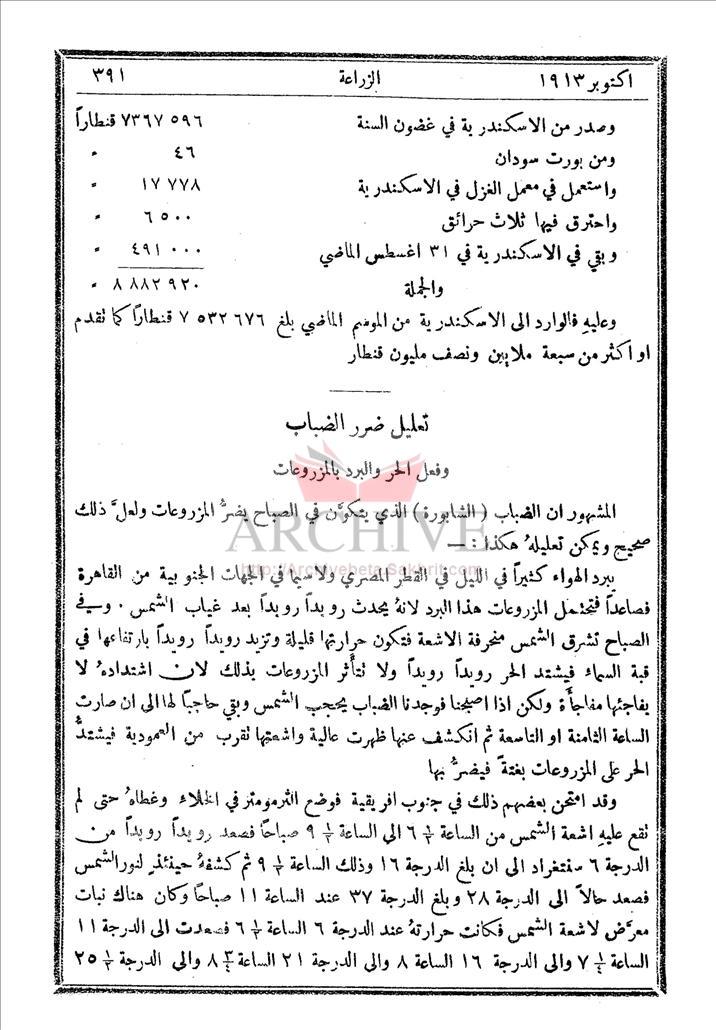 اكتوبر ١٩١٣ الزراعة ٣٩١
وصدر من الاسكندرية في غضون السنة ٧٣٦٧ ٥٩٦ قنطاراً
ومن بورت سودان ٤٦ "
واستعمل في معمل الغزل في الاسكندرية ١٧ ٧٧٨ "
واحترق فيها ثلاث حرائق ٦ ٥٠٠ "
وبقي في الاسكندرية في ٣١ اغسطس الماضي ٤٩١ ٠٠٠ "
والجملة ٨ ٨٨٢ ٩٢٠ "
وعليه فالوارد الى الاسكندرية من الموسم الماضي بلغ ٧ ٥٣٢ ٦٧٦ قنطاراً كما تقدم
او اكثر من سبعة ملايين ونصف مليون قنطار
تعليل ضرر الضباب
وفعل الحر والبرد بالمزروعات
المشهور ان الضباب (الشابورة) الذي يتكوَّن في الصباح يضرُّ المزروعات ولعلَّ ذلك
صحيح ويمكن تعليلهُ هكذا : —
ARCHIVE
http://Archivebeta.Sakhrit.com
يبرد الهواء كثيراً في الليل في القطر المصري ولاسيما في الجهات الجنوبية من القاهرة
فصاعداً فتحتمل المزروعات هذا البرد لانهُ يحدث رويداً رويداً بعد غياب الشمس . وفي
الصباح تشرق الشمس منحرفة الاشعة فتكون حرارتها قليلة وتزيد رويداً رويداً بارتفاعها في
قبة السماء فيشتد الحر رويداً رويداً ولا تتأثر المزروعات بذلك لان اشتدادهُ لا
يفاجئها مفاجأة ولكن اذا اصبحنا فوجدنا الضباب يحجب الشمس وبقي حاجباً لها الى ان صارت
الساعة الثامنة او التاسعة ثم انكشف عنها ظهرت عالية واشعتها تقرب من العمودية فيشتدُّ
الحر على المزروعات بغتةً فيضرُّ بها
وقد امتحن بعضهم ذلك في جنوب افريقية فوضع الثرمومتر في الخلاء وغطاهُ حتى لم
تقع عليهِ اشعة الشمس من الساعة ٦ ١/٢ الى الساعة ٩ ١/٢ صباحاً فصعد رويداً رويداً من
الدرجة ٦ سنتغراد الى ان بلغ الدرجة ١٦ وذلك الساعة ٩ ١/٢ ثم كشفهُ حينئذٍ لنور الشمس
فصعد حالاً الى الدرجة ٢٨ وبلغ الدرجة ٣٧ عند الساعة ١١ صباحاً وكان هناك نبات
معرَّض لاشعة الشمس فكانت حرارتهُ عند الدرجة ٦ الساعة ٦ ١/٢ فصعدت الى الدرجة ١١
الساعة ٧ ١/٢ والى الدرجة ١٦ الساعة ٨ والى الدرجة ٢١ الساعة ٨ ٣/٤ والى الدرجة ٢٥ ١/٢